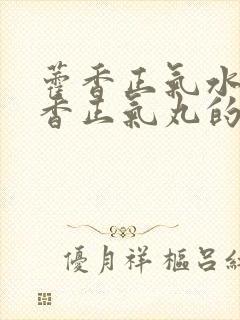 藿香正氣水
香正氣丸的
優月祥樞呂